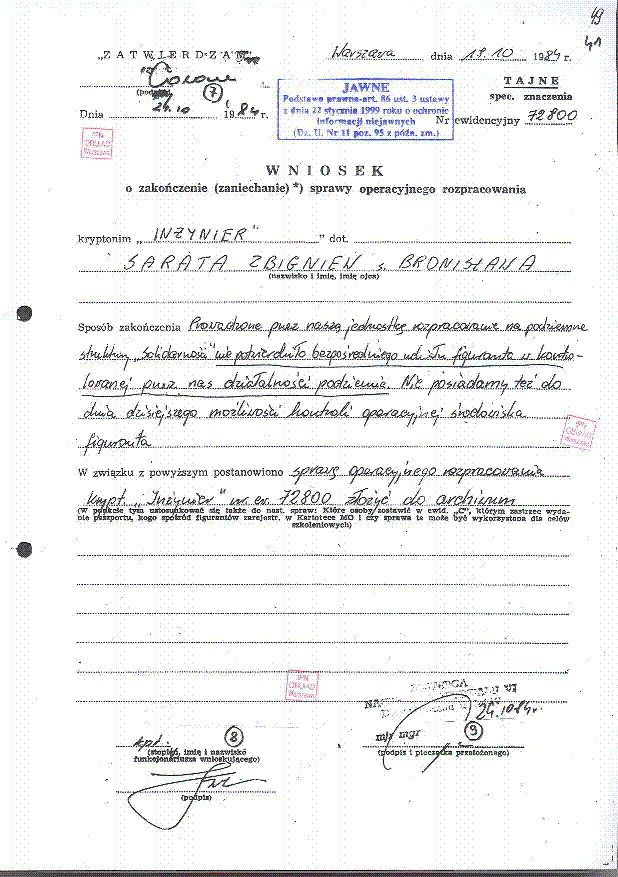 49
41
„ZATWIERDZAM"
Warszawa dnia 19.10 1984 r.
(podpis)
7
TAJNE
spec. znaczenia
JAWNE
Podstawa prawna-art. 86 ust. 3 ustawy
z dnia 22 stycznia 1999 roku o ochronie
informacji niejawnych
(Dz. U. Nr 11 poz. 95 z późn. zm.)
Dnia 24.10 1984 r.
Nr ewidencyjny 72800
IPN
ODDZIAŁ
Warszawa
WNIOSEK
o zakończenie (zaniechanie) *) sprawy operacyjnego rozpracowania
kryptonim „INŻYNIER" ” dot.
SARATA ZBIGNIEW s. BRONISŁAWA
(nazwisko i imię, imię ojca)
Sposób zakończenia Prowadzone przez naszą jednostkę rozpracowanie na podziemne
struktury „Solidarności" nie potwierdziło bezpośredniego udziału figuranta w kontro-
lowanej przez nas działalności podziemia. Nie posiadamy też do
dnia dzisiejszego możliwości kontroli operacyjnej środowiska
figuranta
IPN
ODDZIAŁ
Warszawa
W związku z powyższym postanowiono sprawę operacyjnego rozpracowania
krypt. „Inżynier" nr ew. 72800 złożyć do archiwum
(W punkcie tym ustosunkować się także do nast. spraw: Które osoby zostawić w ewid. „C", którym zastrzec wyda-
nie paszportu, kogo spośród figurantów zarejestr. w Kartotece MO i czy sprawa ta może być wykorzystana dla celów
szkoleniowych)
IPN
ODDZIAŁ
Warszawa
ZASTĘPCA
24.10.84r.
kpt.
8
mjr mgr
9
(stopień, imię i nazwisko
funkcjonariusza wnioskującego)
(podpis i pieczątka przełożonego)
(podpis)